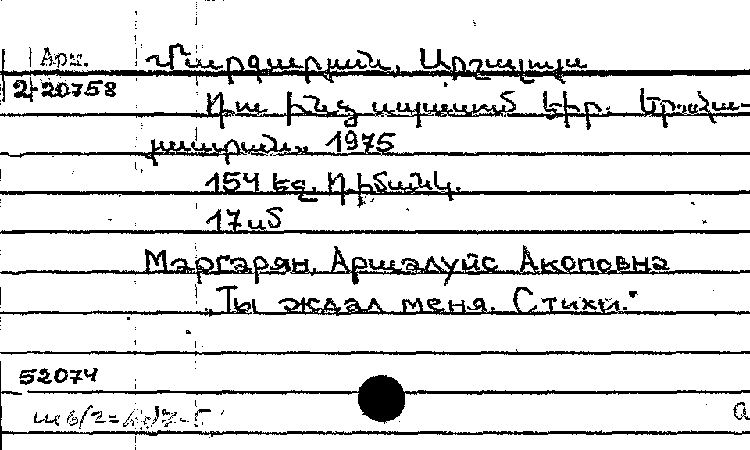 Арм.
Մարգարյան, Արշալույս
2-20758
Դու ինձ սպասում էիր. Երևան
1975
154 եջ. դիմանկ.
17սմ
Маргарян, Аршалуйс Акоповна
"Ты ждал меня. Стихи."
52074